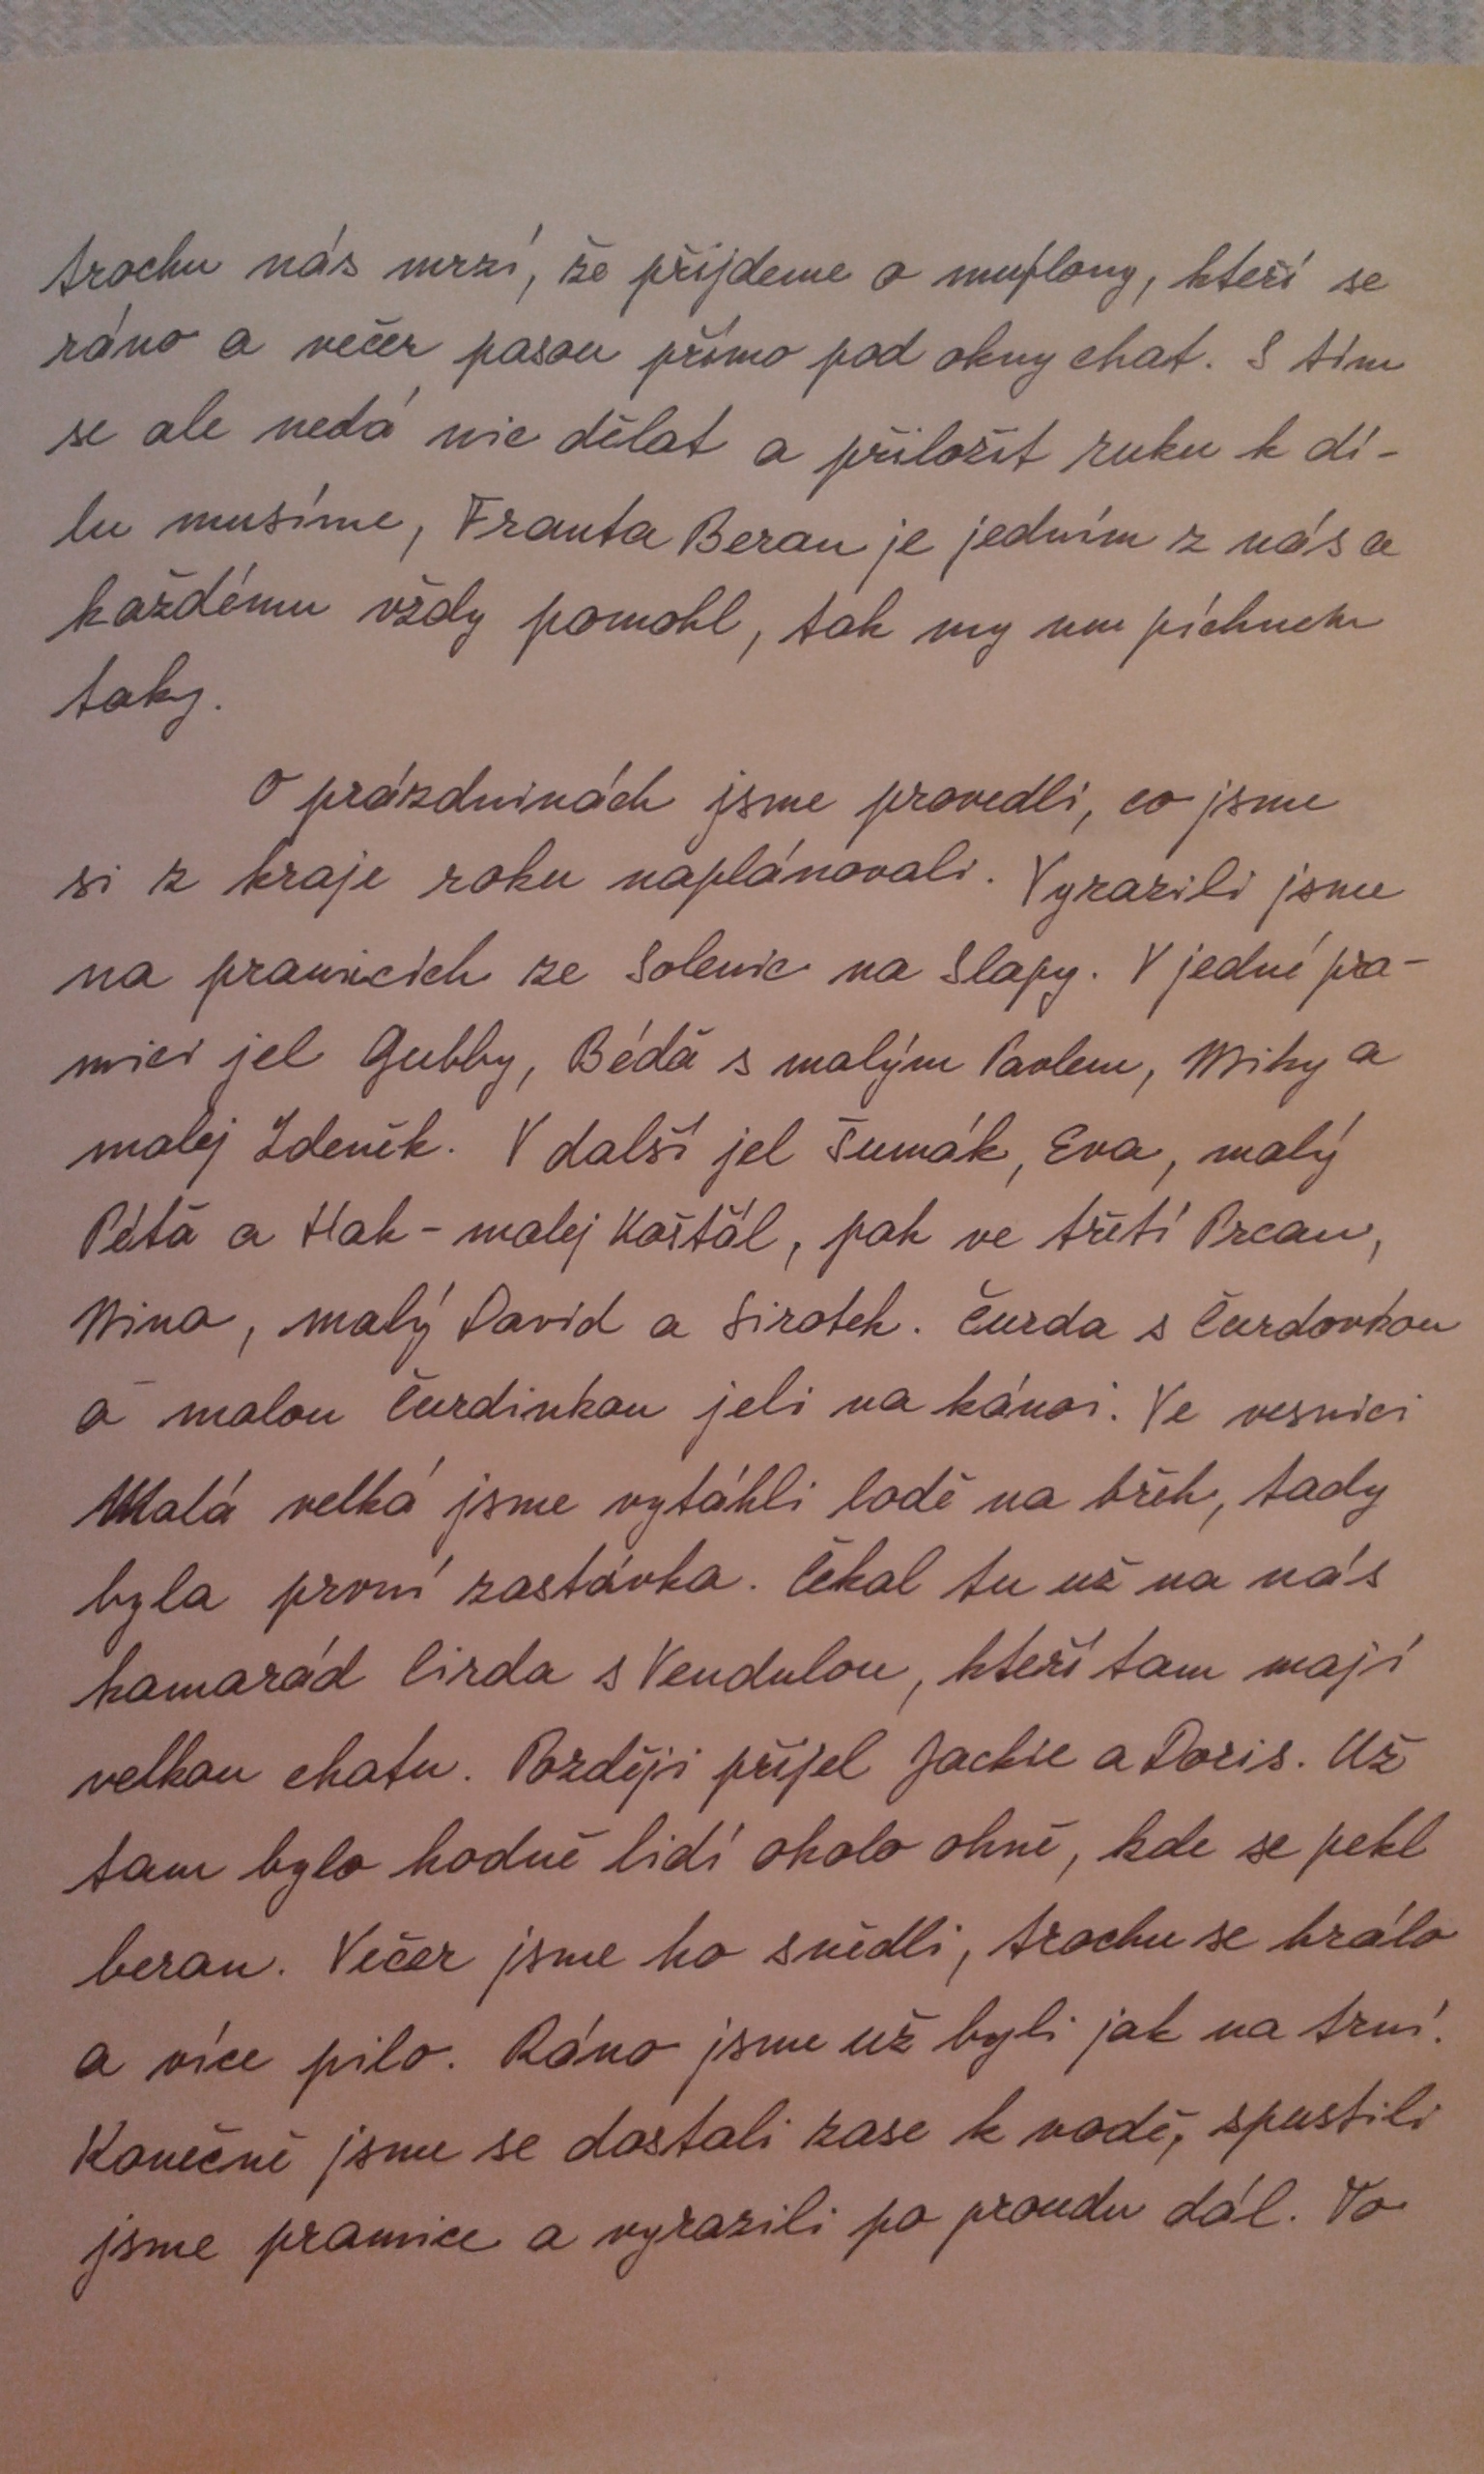 trochu nás mrzí, že přijdeme o muflony, kteří se
ráno a večer pasou přímo pod okny chat. S tím
se ale nedá nic dělat a přiložit ruku k dí-
lu musíme, Franta Beran je jedním z nás a
každému vždy pomohl, tak my mu píchnem
taky.
O prázdninách jsme provedli, co jsme
si z kraje roku naplánovali. Vyrazili jsme
na pramicích ze Solenic na Slapy. V jedné pra-
mici jel Gubby, Béďa s malým Pavlem, Miky a
malej Zdeněk. V další jel Šumák, Eva, malý
Péťa a Hak - malej Košťál, pak ve třetí Prcan,
Nina, malý David a Sirotek. Čurda s Čurdovkou
a malou Čurdinkou jeli na kánoi. Ve vesnici
Malá velká jsme vytáhli lodě na břeh, tady
byla první zastávka. Čekal tu už na nás
kamarád Cirda s Vendulou, kteří tam mají
velkou chatu. Později přijel Jackie a Doris. Už
tam bylo hodně lidí okolo ohně, kde se pekl
beran. Večer jsme ho snědli, trochu se hrálo
a více pilo. Ráno jsme už byli jak na trní.
Konečně jsme se dostali zase k vodě, spustili
jsme pramice a vyrazili po proudu dál. To